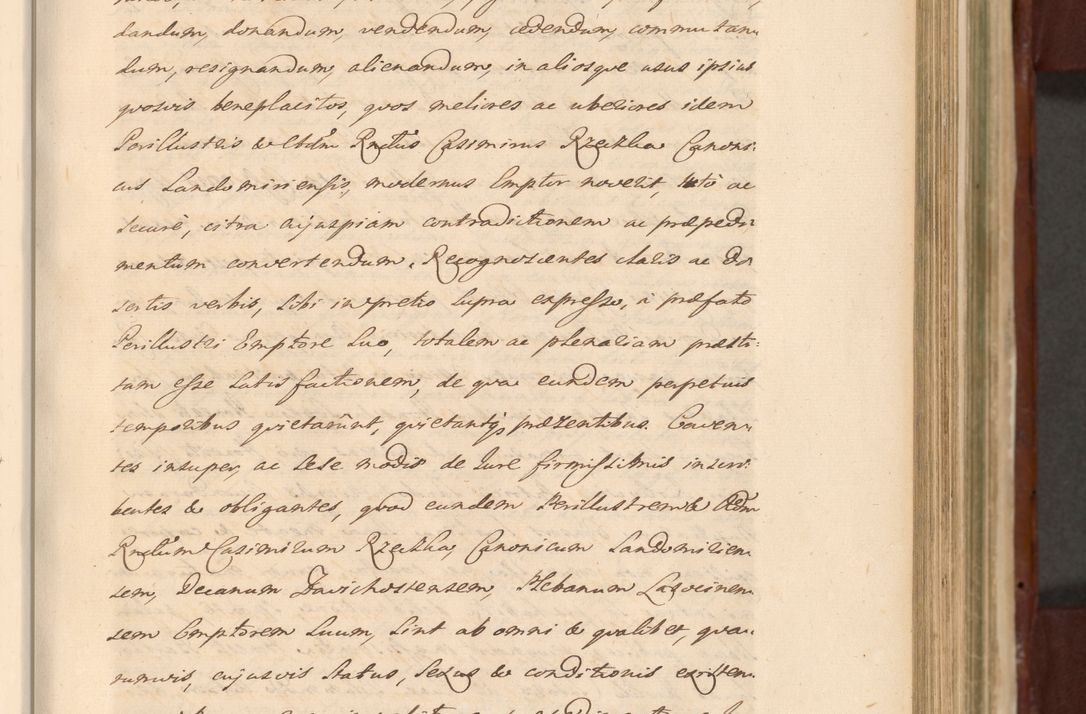 dandum, donandum, vendendum, cedendum, commutan,
dum, resignandum, alienandum, in aliosque usus ipsius
quosvis beneplacitos, quos meliores ac uberiores idem
Perillustris & Adm Rndus Casimirus Rzeczka Canoni:
cus Sandomiriensis, modernus Emptor noverit, tuto ac
secure, citra cujuspiam contradictionem ac præpedi:
mentum convertendum. Recognoscentes claris ac di
sertis verbis, sibi in pretio supra expresso, à præfato
Perillustri Emptore suo, totalem ac plenariam præsti:
tam esse satisfactionem, de qua eundem perpetuis
temporibus quietarunt, quietantq; præzentibus. Caven:
tes insuper, ac sese modis de Jure firmissimis inscri:
bentes & obligantes, quod eundem Perillustrem & Adm
Rndum Casimirum Rzeczka, Canonicum Sandomirien
sem, Decanum Zavichostensem Plebanum
sem Emptorem suum, sint ab omni & qualibet, qua:
rumvis, cujusvis status, sexus & conditionis existen: